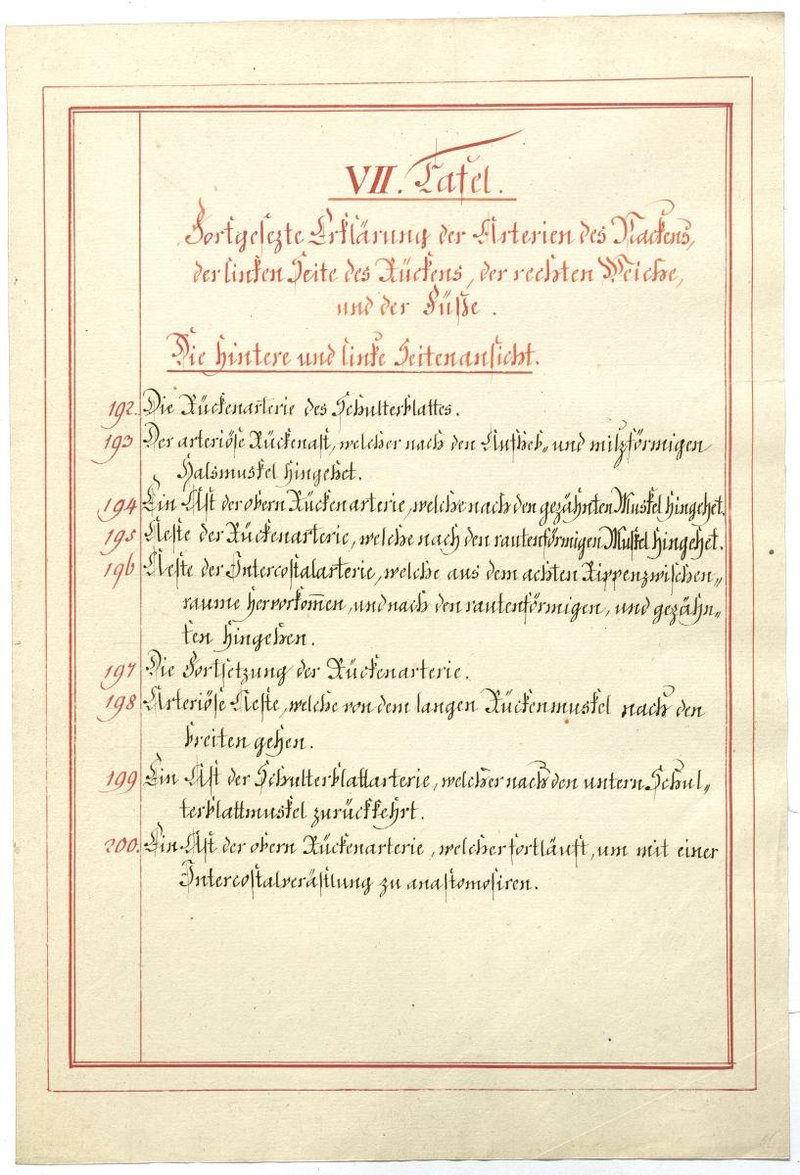 VII. Tafel.
Fortgesezte Erklärung der Arterien des Nackens,
der linken Seite des Rückens, der rechten Weiche,
und der Füße.
Die hintere und linke Seitenansicht.
192. Die Rückenarterie des Schulterblattes.
193 Der arteriöse Rückenast, welcher nach den Aufheb- und milzförmigen
Halsmuskel hingehet.
194 Ein Ast der obern Rückenarterie, welche nach den gezähnten Muskel hingehet.
195 Aeste der Rückenarterie, welche nach den rautenförmigen Muskel hingehet.
196 Aeste der Intercostalarterie, welche aus dem achten Rippenzwischen-
raume hervorkom̄en, und nach den rautenförmigen, und gezähn-
ten hingehen.
197 Die Fortsetzung der Rückenarterie.
198 Arteriöse Aeste, welche von dem langen Rückenmuskel nach den
breiten gehen.
199 Ein Ast der Schulterblattarterie, welcher nach den untern Schul-
terblattmuskel zurückkehrt.
200. Ein Ast der obern Rückenarterie, welcher fortläuft, um mit einer
Intercostalverästlung zu anastomosiren.